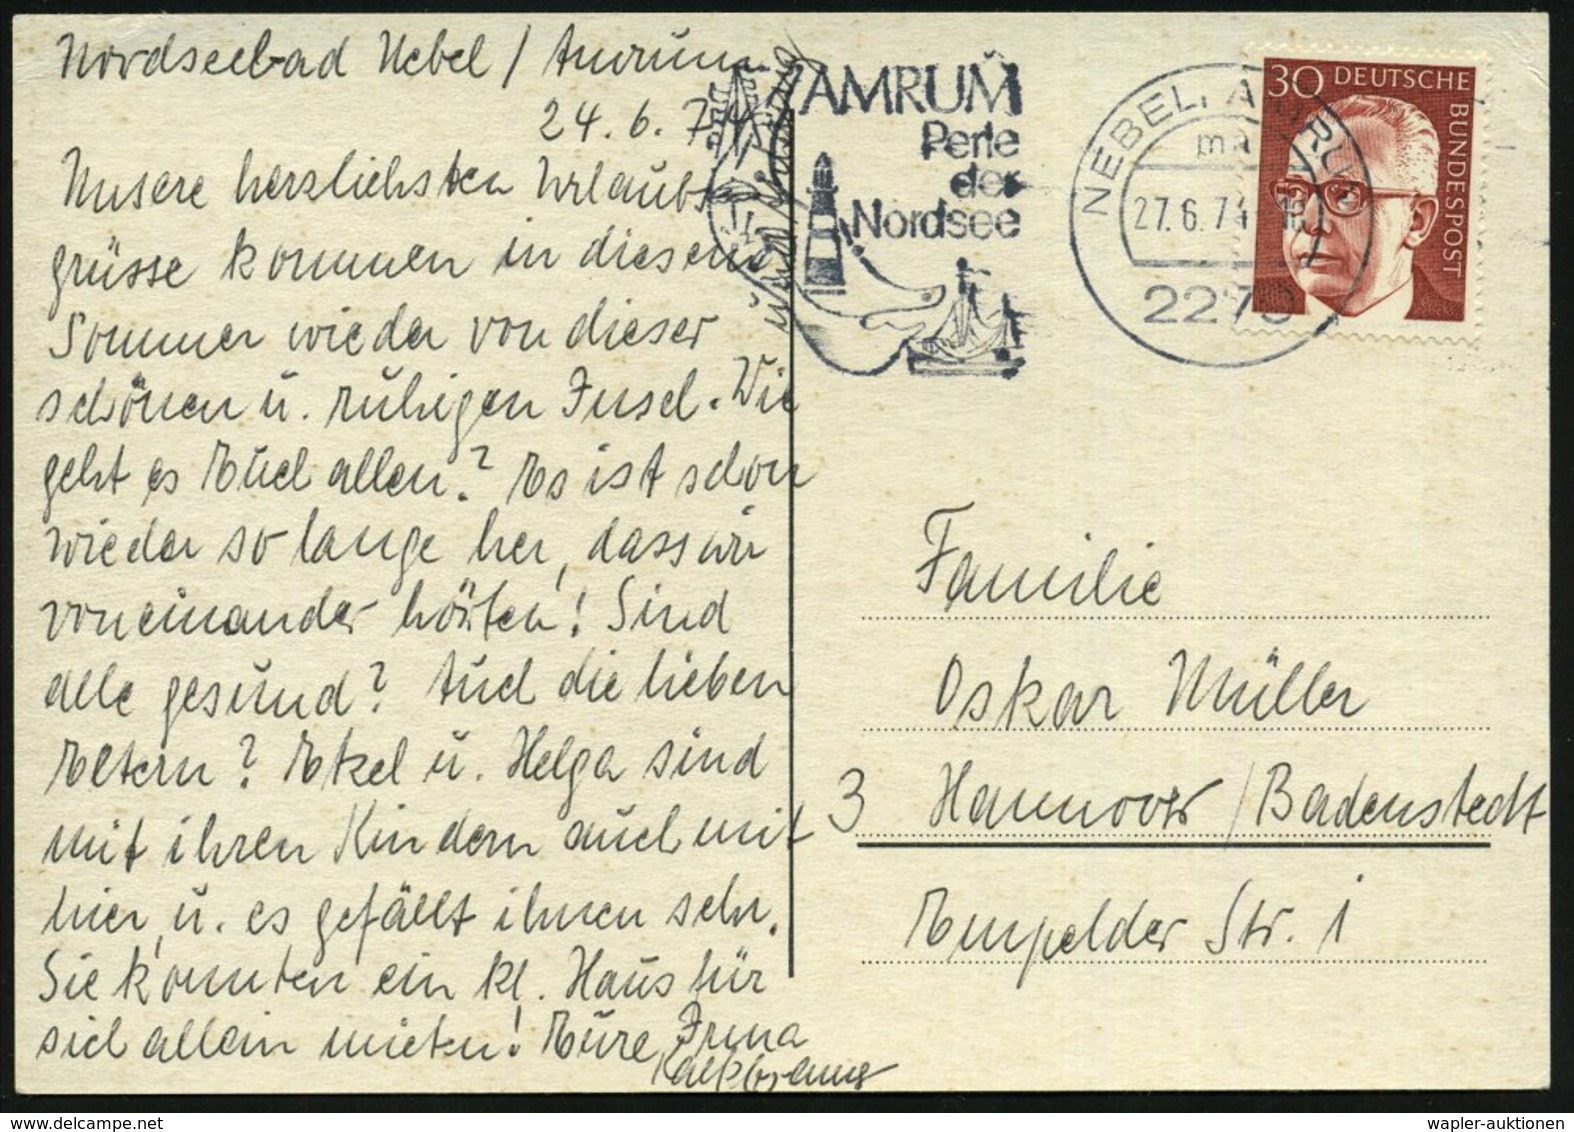 Nordseebad Nebel / Amrum
24. 6. 74
Unsere herzlichsten Urlaubs
grüsse kommen in diesem
Sommer wieder von dieser
schönen u. ruhigen Insel. Wie
geht es Euch allen? Es ist schon
wieder so lange her, dass wir
voneinander hörten! Sind
alle gesund? Auch die lieben
Eltern? Ekel u. Helga sind
mit ihren Kindern auch mit
hier, u. es gefällt ihnen sehr.
Sie konnten ein kl. Haus für
sich allein mieten! Eure Irma
AMRUM
Perle
der
Nordsee
NEBEL, AMRUM
27. 6. 74
2278
30 DEUTSCHE
BUNDESPOST
Familie
Oskar Müller
3 Hannover / Badenstedt
Empelder Str. 1
wapler-auktionen